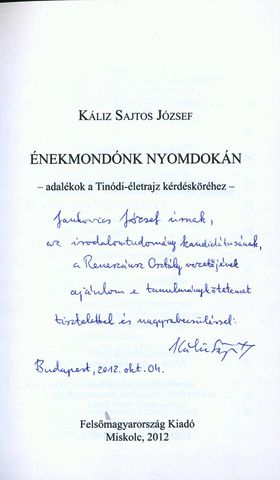 KÁLIZ SAJTOS JÓZSEF
ÉNEKMONDÓNK NYOMDOKÁN
– adalékok a Tinódi-életrajz kérdésköréhez –
Jankovics József úrnak,
az irodalomtudomány kandidátusának,
a Reneszánsz Osztály vezetőjének
ajánlom e tanulmánykötetemet
tisztelettel és nagyrabecsüléssel:
Budapest, 2012. okt. 04.
Felsőmagyarország Kiadó
Miskolc, 2012